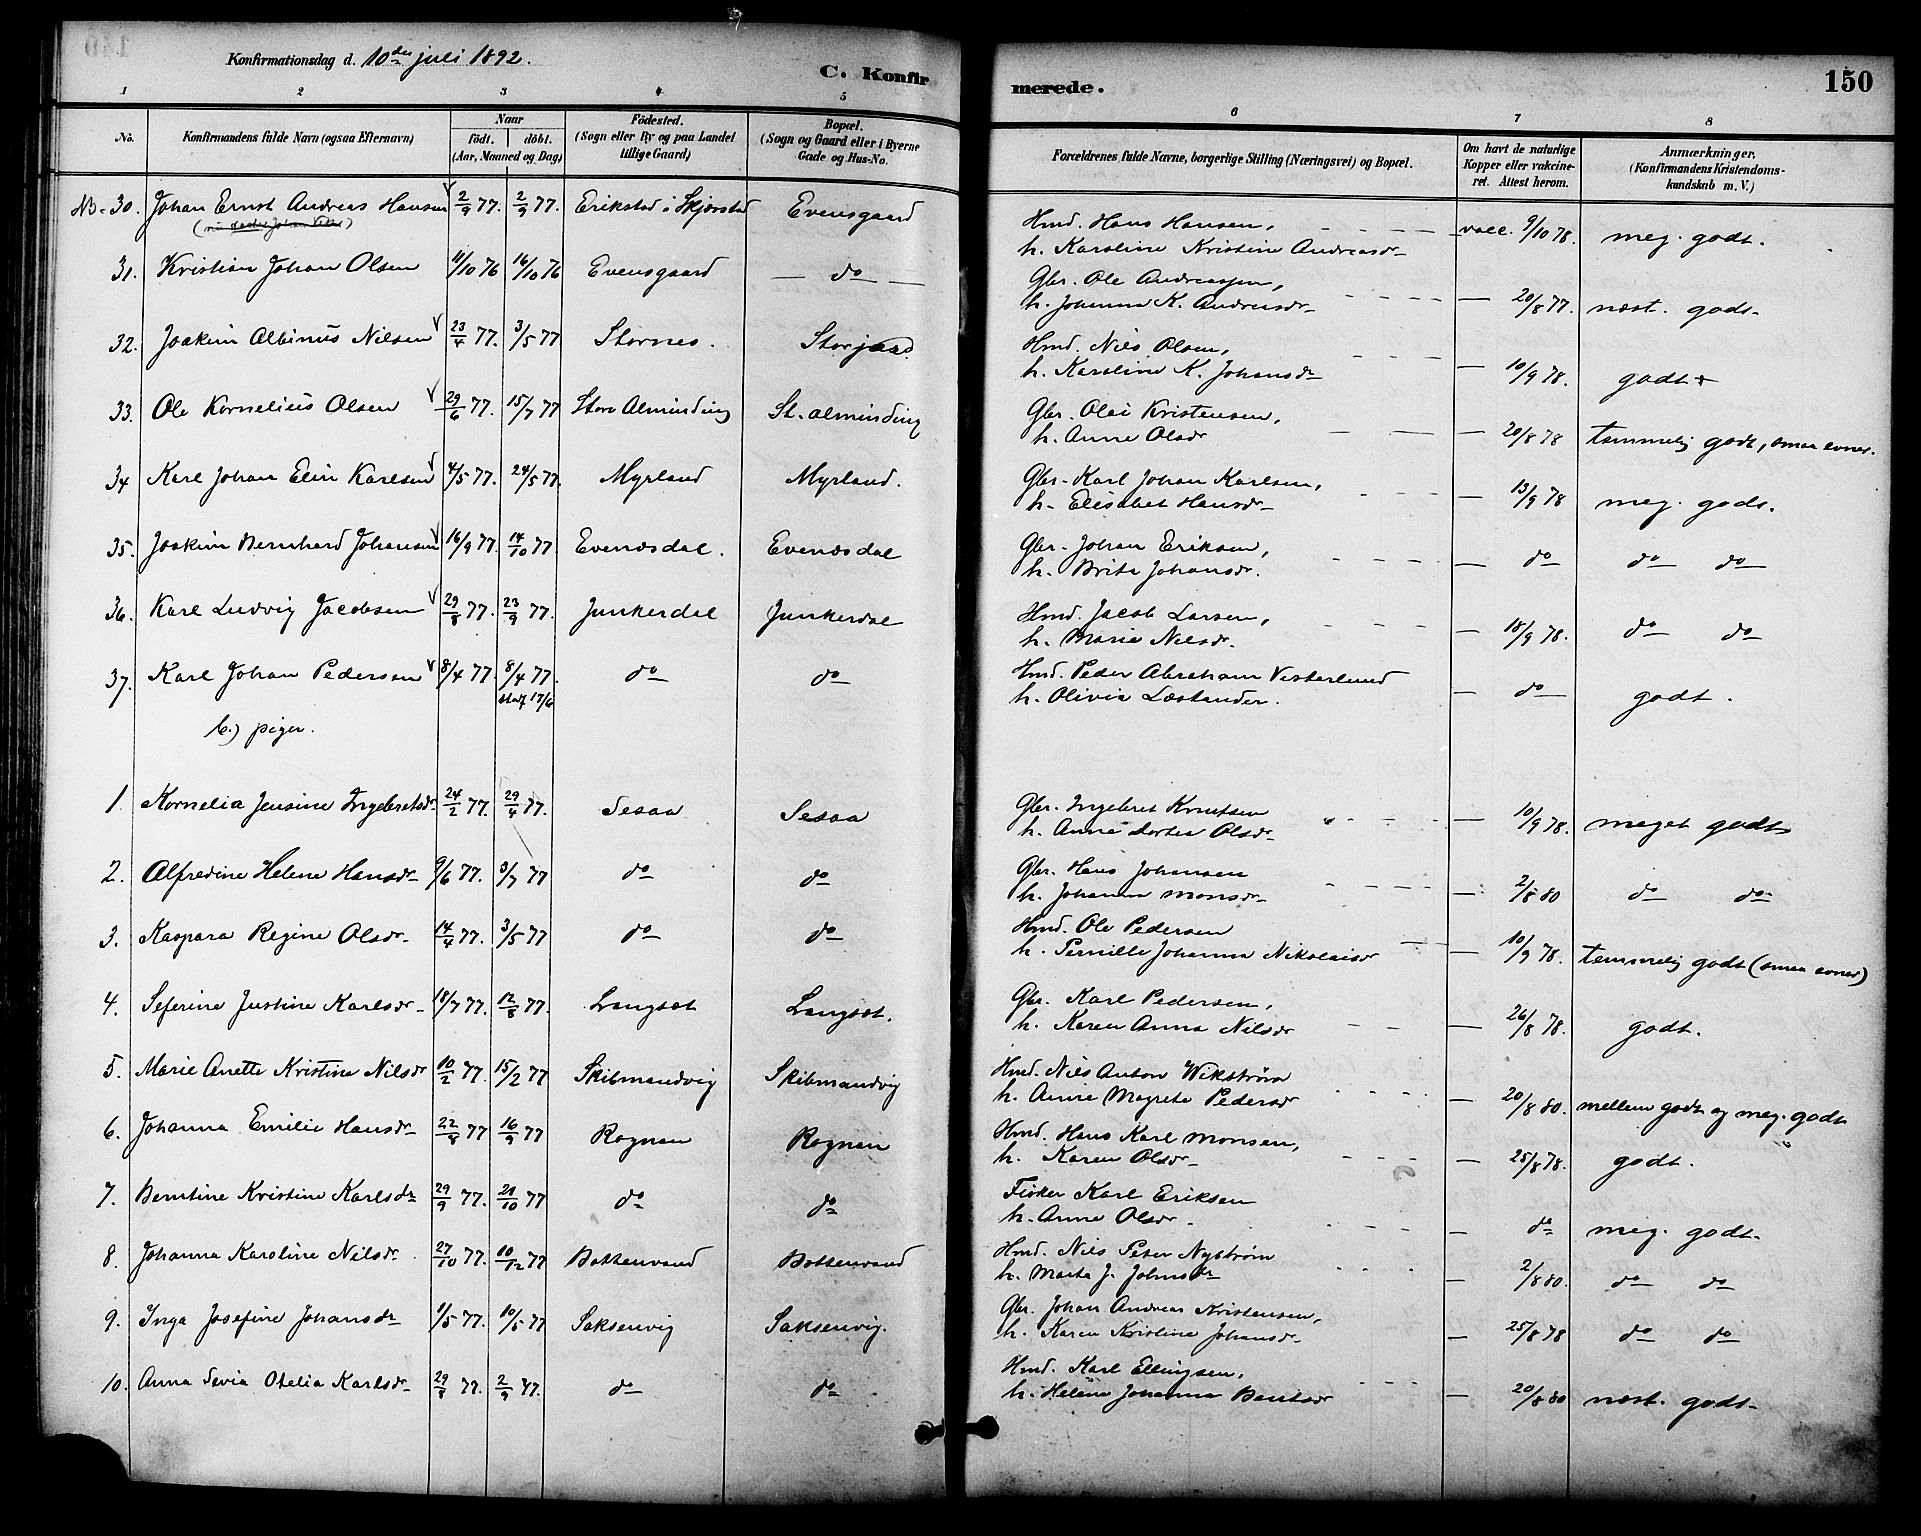 Konfirmationsdag d. 10de juli 1892.
C. Konfirmerede.
150
1 2 3 4 5 6 7 8
No. Konfirmandens fulde Navn (ogsaa Efternavn) Naar födt. döbt. (Aar, Maaned og Dag) Födested. (Sogn eller By og paa Landet tillige Gaard) Bopæl. (Sogn og Gaard eller i Byerne Gade og Hus-No. Forældrenes fulde Navne, borgerlige Stilling (Næringsvei) og Bopæl. Om havt de naturlige Kopper eller vakcineret. Attest herom. Anmærkninger. (Konfirmandens Kristendomskundskab m. V.)
NB. 30. Johan Ernst Andreas Hansen 2/9 77. 2/9 77. Erikstad i Skjerstad Evensgaard Hmd. Hans Hansen, vacc. 9/10 78. meg. godt.
h. Karoline Kristine Andreasdr
31. Kristian Johan Olsen 11/10 76 16/10 76 Evensgaard do Gbr. Ole Andreassen, 20/8 77. næst. godt
h. Johanna K. Andreasdr
32. Joakim Albinus Nilsen 23/4 77. 3/5 77 Stornes. Storjord Hmd. Nils Olsen, 10/9 78. godt
h. Karoline K. Johansdr
33. Ole Kornelius Olsen 29/6 77. 15/7 77 Store Alminding St. alminding Gbr. Olai Kristensen, 20/8 78 temmelig godt, smaa evner.
h. Anne Olsdr
34 Karl Johan Elin Karlsen 4/5 77. 24/5 77. Myrland Myrland. Gbr. Karl Johan Karlsen, 13/9 78 meg. godt.
h. Elisabet Hansdr
35. Joakim Bernhard Johansen 16/9 77. 14/10 77. Evenesdal. Evenesdal Gbr. Johan Eriksen, do do do
h. Brita Johansdr.
36. Karl Ludvig Jacobsen 29/8 77. 23/9 77. Junkerdal Junkerdal Hmd. Jacob Larsen, 18/9 78. do do
h. Maria Nilsdr.
37. Karl Johan Pedersen 8/4 77. 8/4 77. do do Hmd. Peder Abraham Vesterlund do godt.
stadf. 17/6 h. Olivia Læstander.
b.) piger.
1. Kornelia Jensine Ingebretsdr 24/2 77. 29/4 77. Sesaa Sesaa Gbr. Ingebret Knutsen 10/9 78. meget godt
h. Anne Dortea Olsdr
2. Alfredine Helene Hansdr 9/6 77. 3/7 77 do do Gbr. Hans Johansen 2/8 80 do do
h. Johanna Monsdr
3. Kaspara Regine Olsdr 14/4 77. 3/5 77 do do Hmd. Ole Pedersen 10/9 78. temmelig godt (smaa evner)
h. Pernille Johanna Nikolaisdr
4. Seferine Justine Karlsdr 18/7 77. 12/8 77. Langset Langset. Gbr. Karl Pedersen, 26/8 78. godt.
h. Karen Anna Nilsdr
5. Marie Anette Kristine Nilsdr 10/2 77. 15/2 77 Skibmandvig Skibmandvig Hmd. Nils Anton Wikstrøm 20/8 80. mellem godt og meg. godt
h. Anne Magrete Pedersdr
6. Johanna Emilie Hansdr 22/8 77 16/9 77 Rognan Rognan Hmd. Hans Karl Monsen, 25/8 78. godt.
h. Karen Olsdr
7. Berntine Kristine Karlsdr 29/9 77. 21/10 77 do do Fisker Karl Eriksen do meg. godt.
h. Anne Olsdr.
8. Johanna Karoline Nilsdr. 27/10 77. 10/12 77 Bottenvand Bottenvand Hmd. Nils Peter Nystrøm 2/8 80. do do
h. Marta J. Johnsdr
9. Inga Josefine Johansdr 1/5 77. 10/5 77 Saksenvig Saksenvig. Gbr. Johan Andreas Kristensen, 25/8 78 do do
h. Karen Kristine Johansdr
10. Anna Sevia Otelia Karlsdr 29/8 77. 2/9 77. do do Hmd. Karl Ellingsen, 20/8 80 næst. godt
h. Helene Johanna Bentsdr